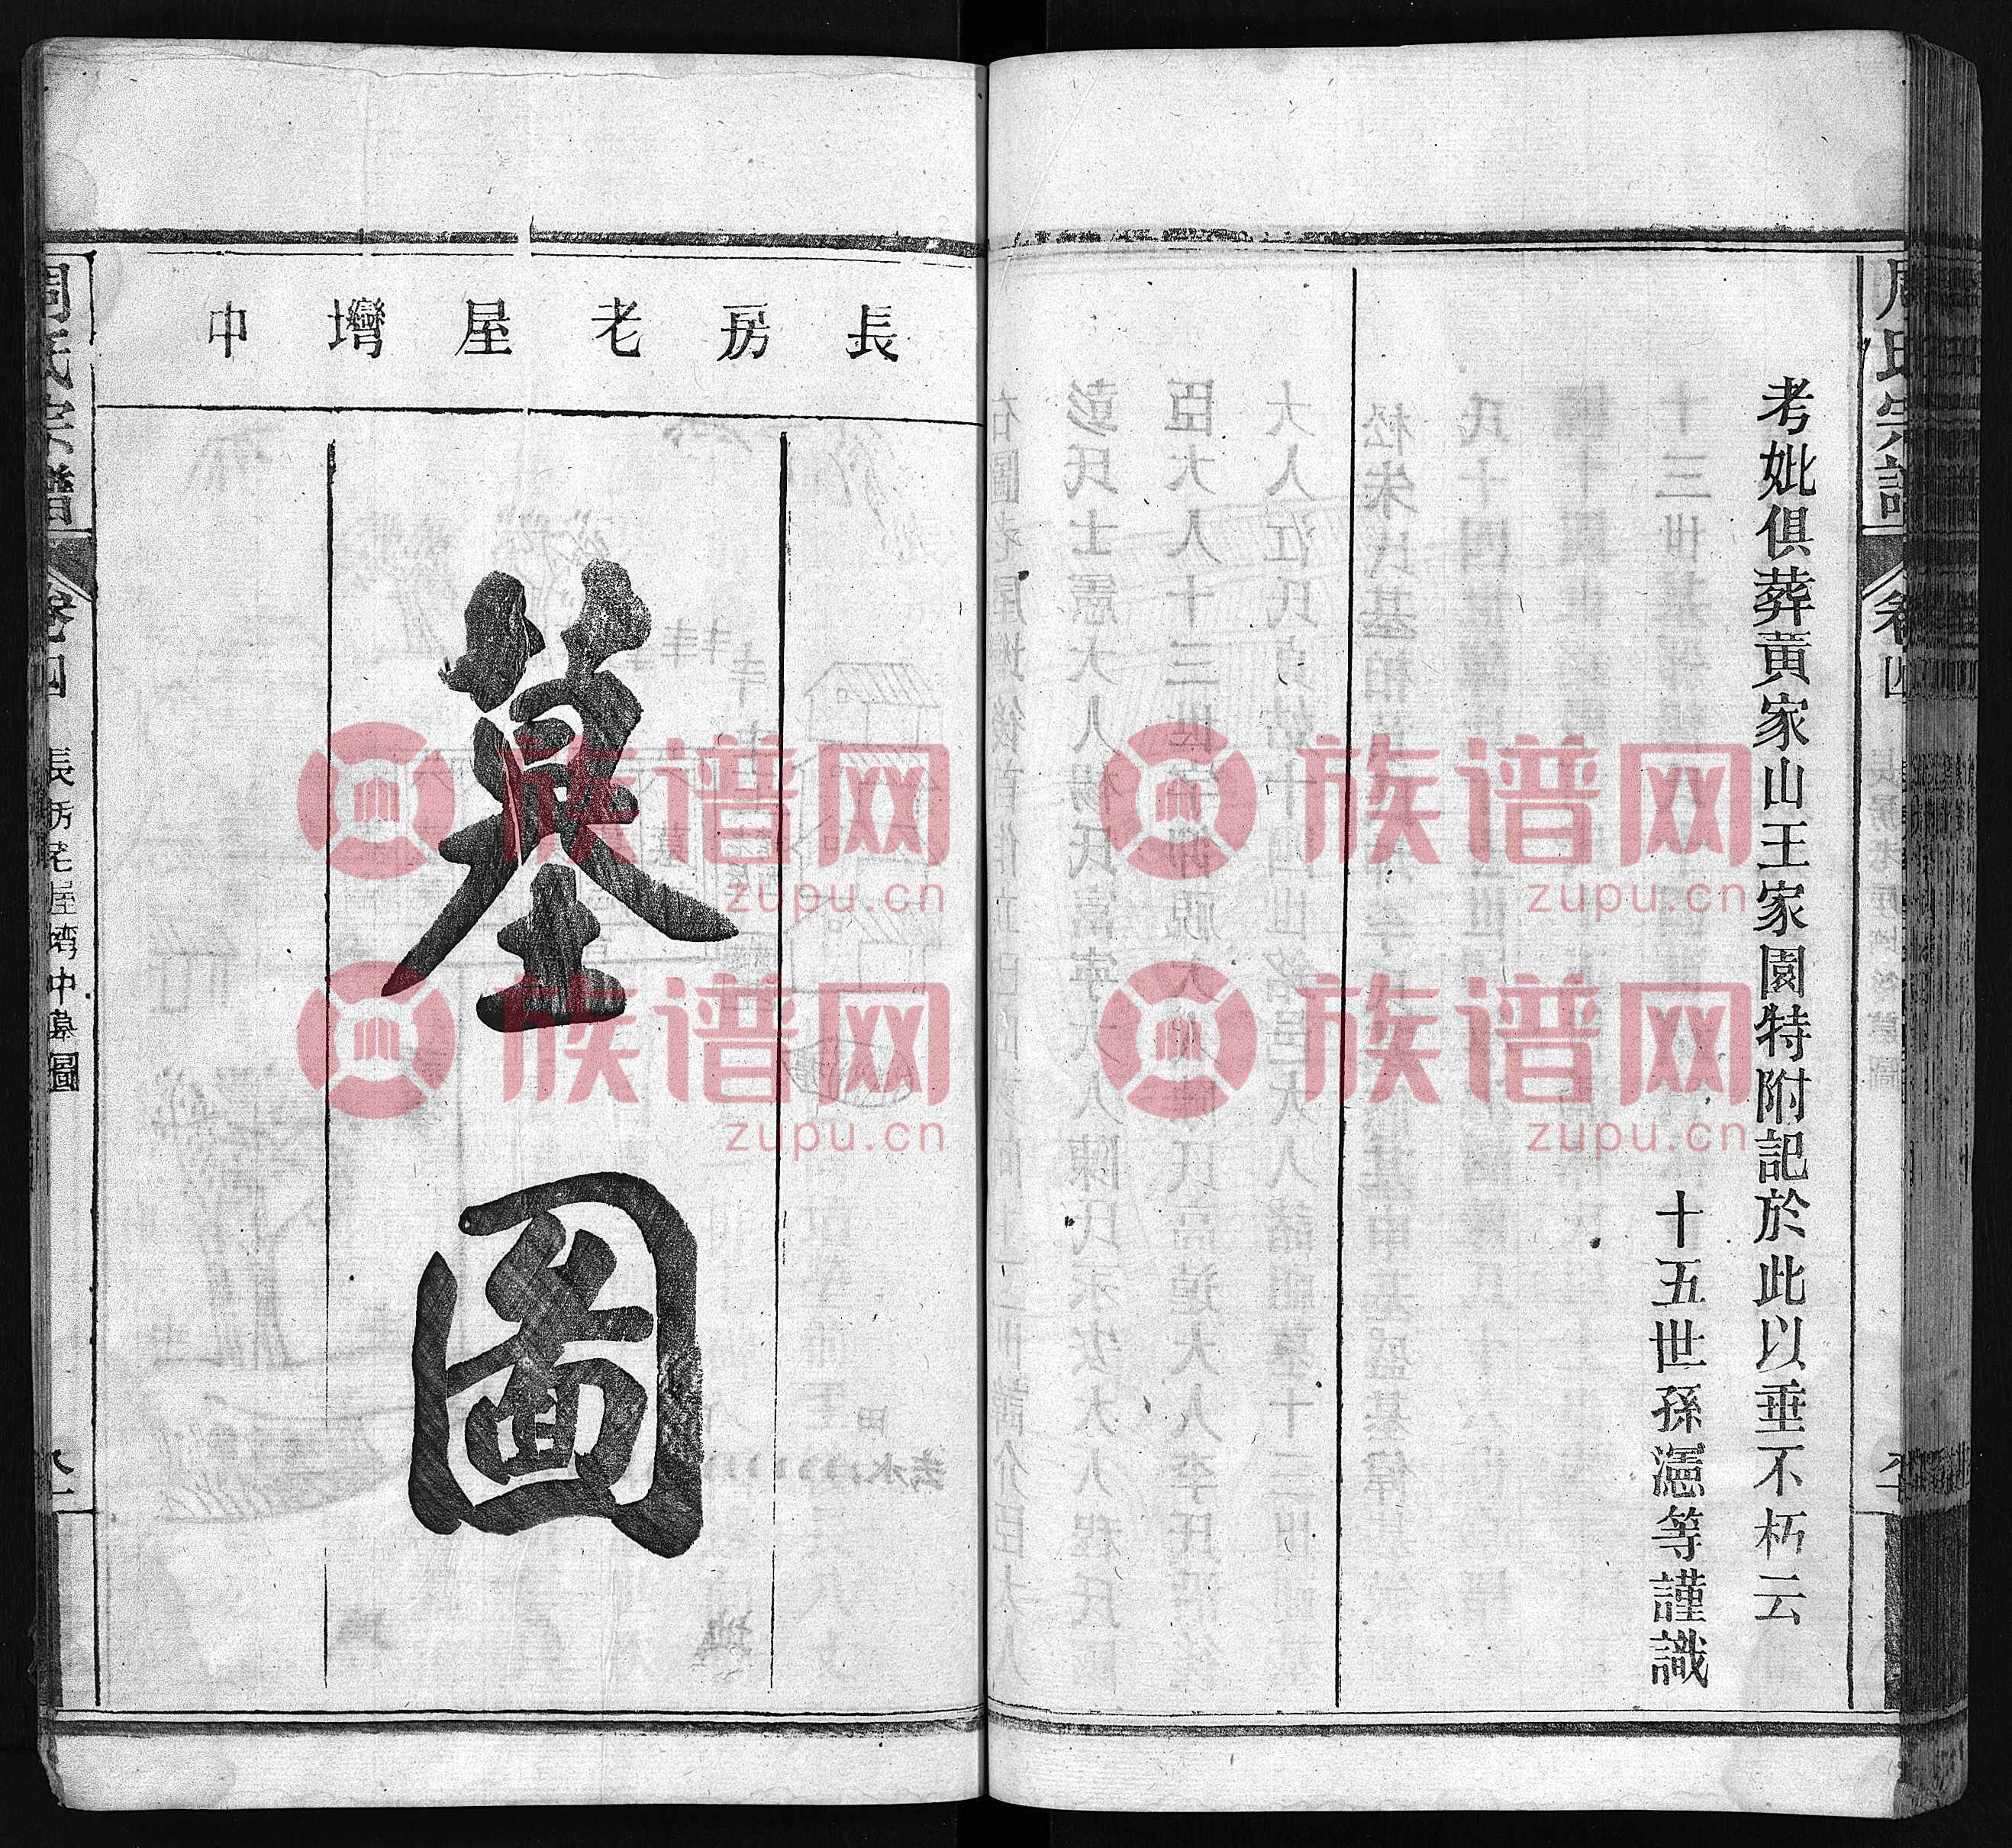 周氏宗譜
卷四
考妣俱葬黃家山王家園特附記於此以垂不朽云
十五世孫瀗等謹識
長房老屋壪中
墓圖
周氏宗譜
卷四
長房老屋壪中墓圖
族谱网
zupu.cn
族谱网
zupu.cn
族谱网
zupu.cn
族谱网
zupu.cn